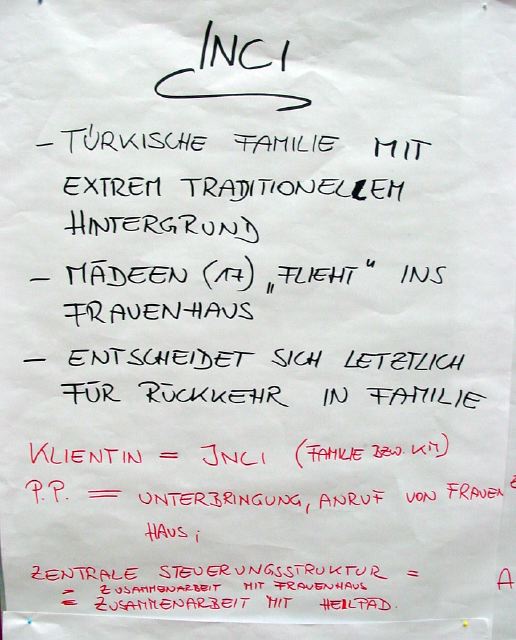 INCI
– TÜRKISCHE FAMILIE MIT
EXTREM TRADITIONELLEM
HINTERGRUND
– MÄDEEN (17) „FLIEHT“ INS
FRAUENHAUS
– ENTSCHEIDET SICH LETZTLICH
FÜR RÜCKKEHR IN FAMILIE
KLIENTIN = INCI (FAMILIE BZW. KM)
P.P. = UNTERBRINGUNG, ANRUF VON FRAUEN
HAUS;
ZENTRALE STEUERUNGSSTRUKTUR = A
= ZUSAMMENARBEIT MIT FRAUENHAUS
= ZUSAMMENARBEIT MIT HEILPÄD.